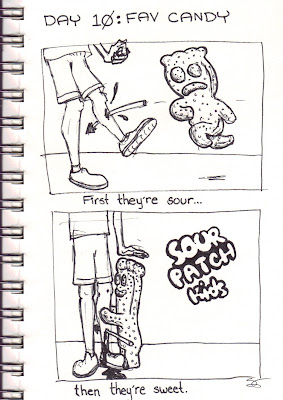 DAY 10: FAV CANDY
First they're sour...
SOUR
PATCH
Kids
then they're sweet.